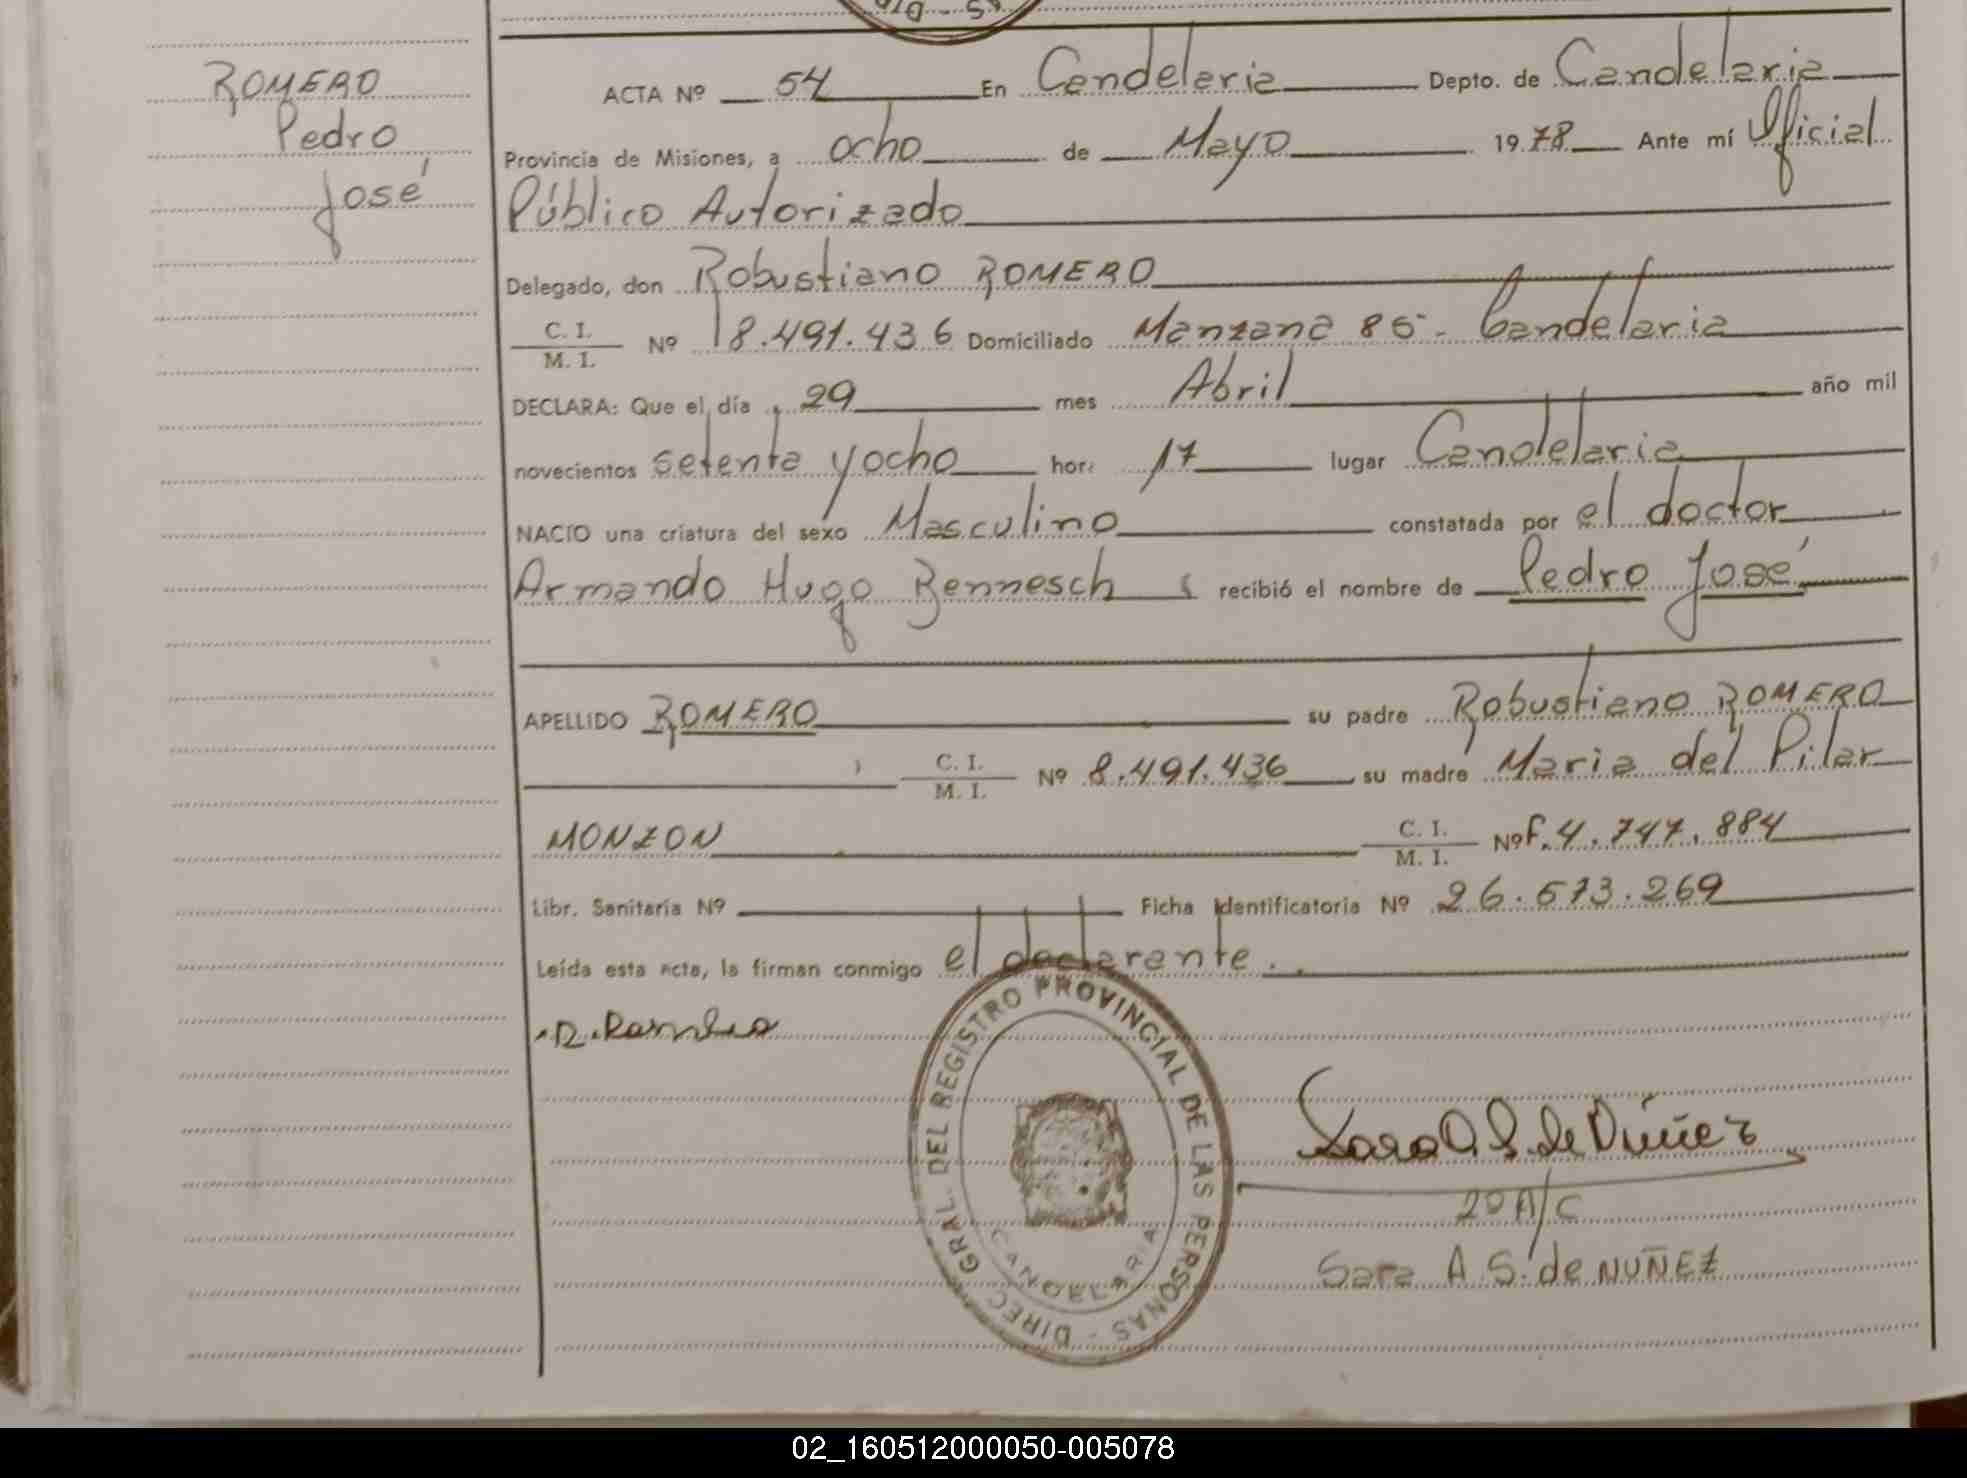 ROMERO
Pedro
José
ACTA Nº 54 En Candelaria Depto. de Candelaria
Provincia de Misiones, a ocho de Mayo 1978 Ante mí Oficial
Público Autorizado
Delegado, don Robustiano ROMERO
C. I.
M. I. Nº 8.491.436 Domiciliado Manzana 85 - Candelaria
DECLARA: Que el día 29 mes Abril año mil
novecientos setenta y ocho hora 17 lugar Candelaria
NACIO una criatura del sexo Masculino constatada por el doctor
Armando Hugo Bennesch recibió el nombre de Pedro José
APELLIDO ROMERO su padre Robustiano ROMERO
C. I.
M. I. Nº 8.491.436 su madre Maria del Pilar
MONZON C. I.
M. I. Nº F.4.747.884
Libr. Sanitaria Nº Ficha Identificatoria Nº 26.573.269
Leída esta acta, la firman conmigo el declarante.
R. Romero
DIREC. GRAL. DEL REGISTRO PROVINCIAL DE LAS PERSONAS -
CANDELARIA
Sara A. S. de Núñez
2º A/C
Sara A. S. de NUÑEZ
02_160512000050-005078